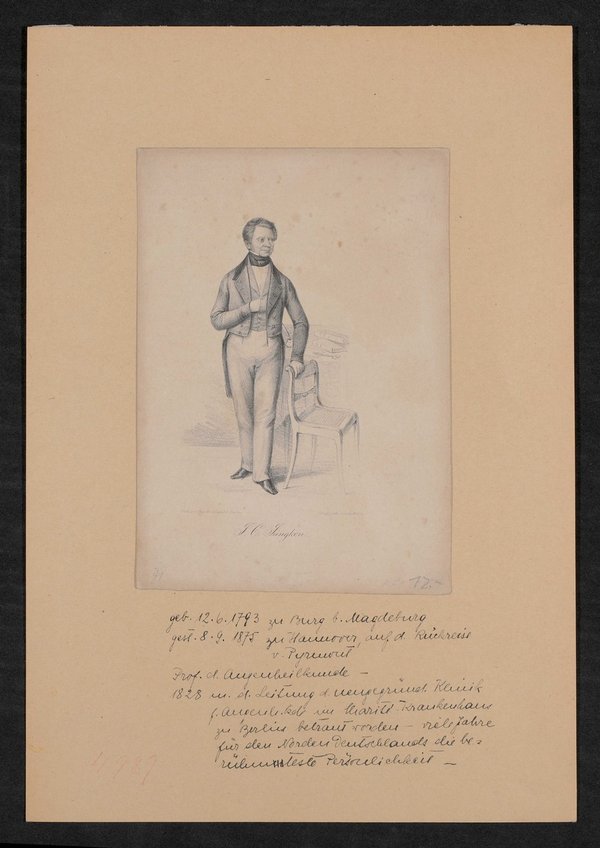 J. C. Jüngken.
12.-
geb. 12.6.1793 zu Burg b. Magdeburg
gest. 8.9.1875 zu Hannover, auf d. Rückreise
v. Pyrmont
Prof. d. Augenheilkunde –
1828 m. d. Leitung d. neugegründ. Klinik
f. im Charité Krankenhaus
zu Berlin betraut worden – viele Jahre
für den Norden Deutschlands die be-
rühmteste Persönlichkeit –